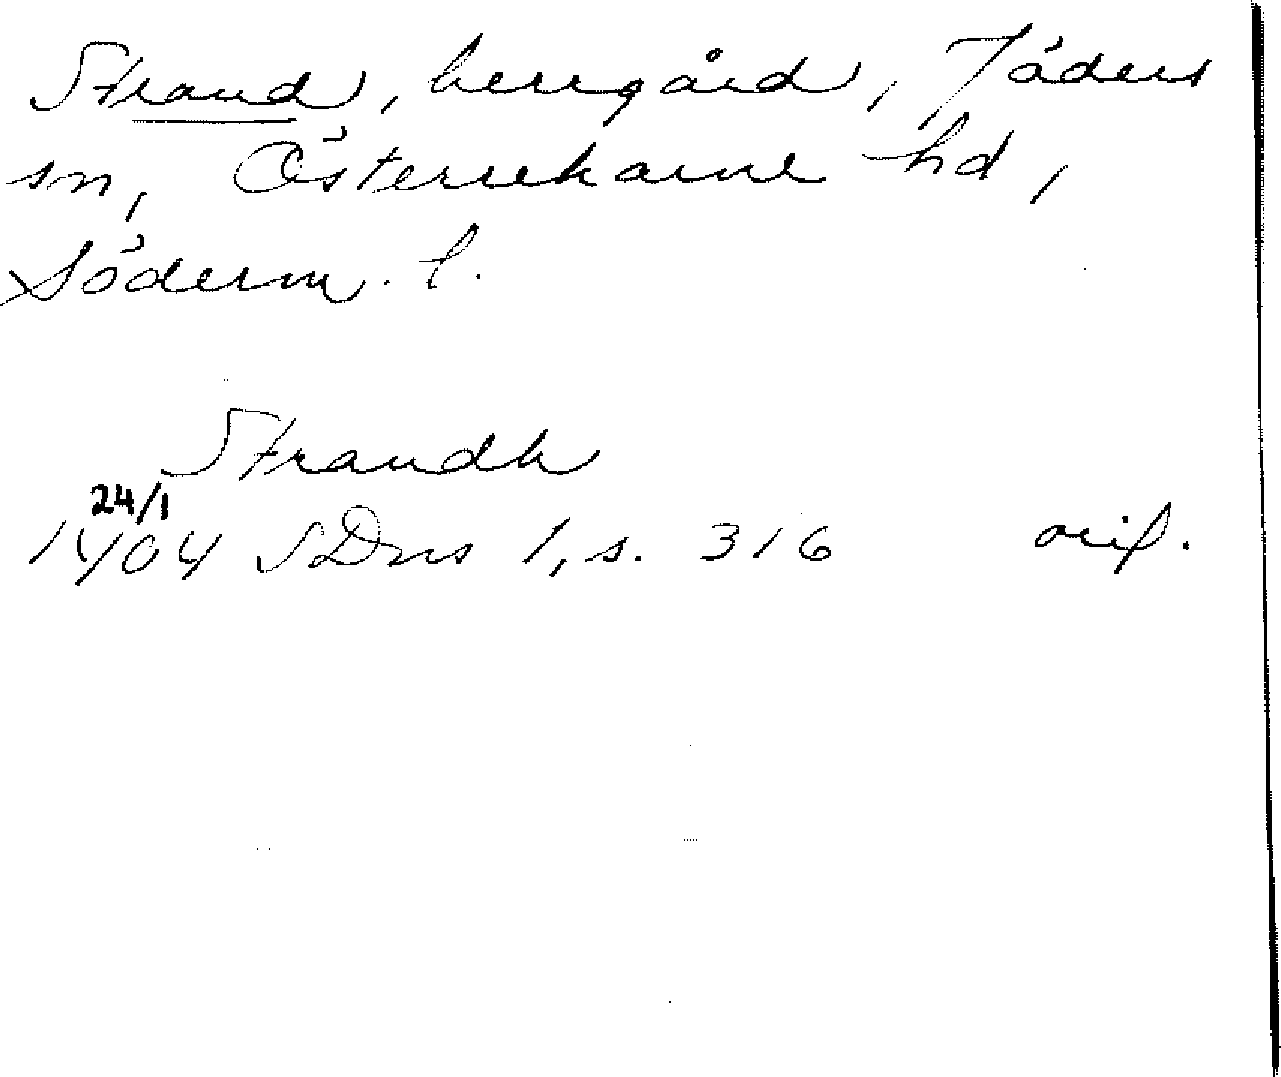 Strand, herrgård, Jäders
sn, Österrekarne hd,
Söderm. l.
Strandh
24/1
1404 SDns 1, s. 316 orig.